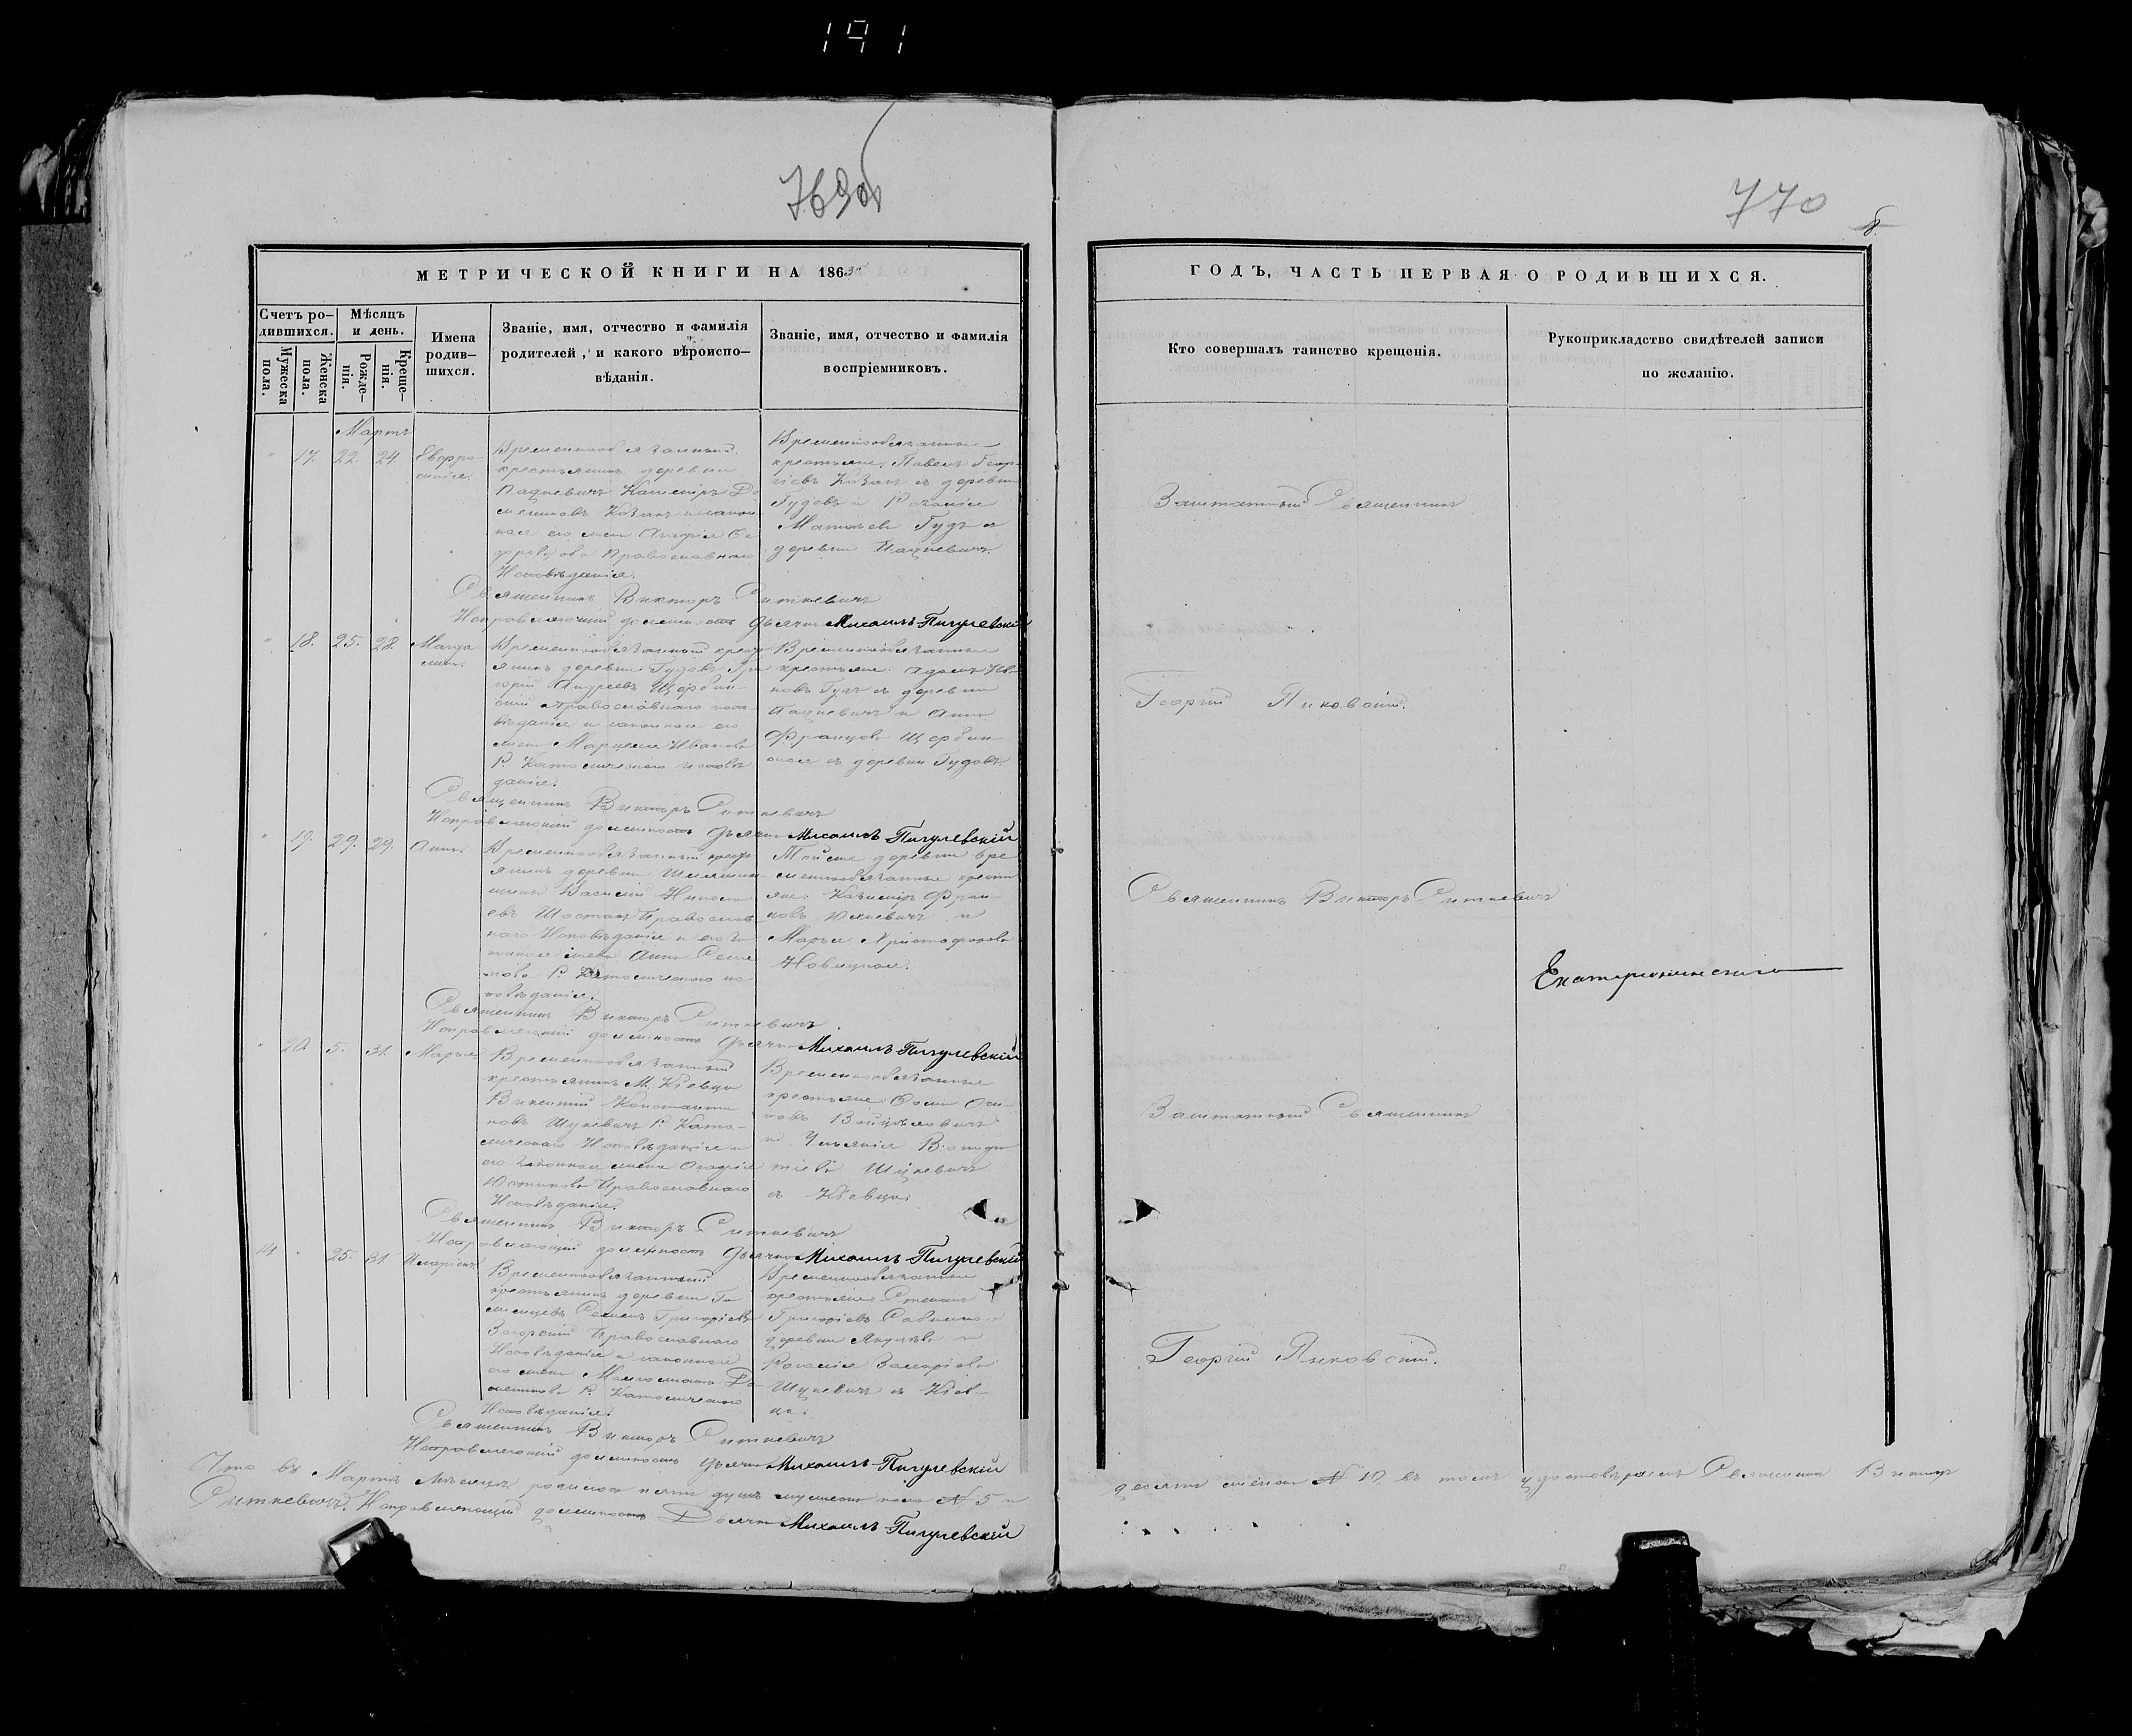 191
769об
770
8.
МЕТРИЧЕСКОЙ КНИГИ НА 1863
ГОДЪ, ЧАСТЬ ПЕРВАЯ О РОДИВШИХСЯ.
Счетъ ро-
дившихся.
Мужеска
пола.
Женска
пола.
Мѣсяцъ
и день.
Рожде-
нія.
Креще-
нія.
Имена
родив-
шихся.
Званіе, имя, отчество и фамилія
родителей, и какого вѣроиспо-
вѣданія.
Званіе, имя, отчество и фамилія
воспріемниковъ.
Кто совершалъ таинство крещенія.
Рукоприкладство свидѣтелей записи
по желанію.
Мартъ
17. 22. 24. Евфро-
синія.
Временнообязанный
крестьянинъ деревни
Пацкевичъ Казиміръ До
миниковъ Козакъ и закон
ная его жена Агафія Ѳе
дорова оба Православнаго
Исповѣданія.
Временнообязанные
крестьяне: Павелъ Геор-
гіевъ Козакъ съ деревни
Гудовъ и Розалія
Матѳеева Гудъ съ
деревни Пацкевичъ.
Заштатный Священникъ
Георгій Янковскій.
Священникъ Викторъ Ситкевичъ
Исправляющій должность Дьячка Михаилъ Пигулевскій
18. 25. 28. Магда
лина
Временнообязанный крест
янинъ деревни Гудовъ Гри
горій Андреевъ Щербин-
скій Православнаго испо
вѣданія и законная его
жена Марцеля Иванова
Р. Католическаго исповѣ
данія.
Временнообязанные
крестьяне: Адамъ Ива
новъ Гудъ съ деревни
Пацкевичъ и Анна
Францова Щербин
ская съ деревни Гудовъ.
Священникъ Викторъ Ситкевичъ
Исправляющій должность Дьячка Михаилъ Пигулевскій
19. 29. 29. Анна.
Временнообязанный крест
янинъ деревни
Василій Никола
евъ Шостакъ Православ
наго Исповѣданія и его за
конная жена Анна Семе
нова Р. Католическаго ис
повѣданія.
Той же деревни вре
меннообязанные крестя
не: Казиміръ Фран
ковъ Юхневичъ и
Марья Христофорова
Новицкая.
Священникъ Викторъ Ситкевичъ
Екатерининскаго
Священникъ Викторъ Ситкевичъ.
Исправляющій должность Дьячка Михаилъ Пигулевскій
20. 5. 31. Марья
Временнообязанный
крестьянинъ М. Кіевца
Викентій Константи
новъ Шукевичъ Р. Като-
лическаго Исповѣданія и
его законная жена Агафія
Юстинова Православнаго
Исповѣданія.
Временнообязанные
крестьяне: Осипъ Оси
повъ Войцѣховичъ
и Ульянія
Шукевичъ
съ Кіевца.
Заштатный Священникъ
Священникъ Викторъ Ситкевичъ
Исправляющій должность Дьячка Михаилъ Пигулевскій
14 25. 31. Иларіонъ.
Временнообязанный
крестьянинъ деревни
Семенъ Григорьевъ
Загорскій Православнаго
Исповѣданія и законная
его жена Малгожата До
миникова Р. Католическаго
Исповѣданія.
Временнообязанные
крестьяне: Стефанъ
Григоріевъ
деревни и
Розалія
Шукевичъ съ Кіев-
ца.
Георгій Янковскій.
Священникъ Викторъ Ситкевичъ
Исправляющій должность Дьячка Михаилъ Пигулевскій
Что въ Мартѣ мѣсяцѣ родилось пять душъ мужеска пола № 5 и
десять женска № 10, въ томъ удостовѣряемъ Священникъ Викторъ
Ситкевичъ. Исправляющій должность Дьячка Михаилъ Пигулевскій